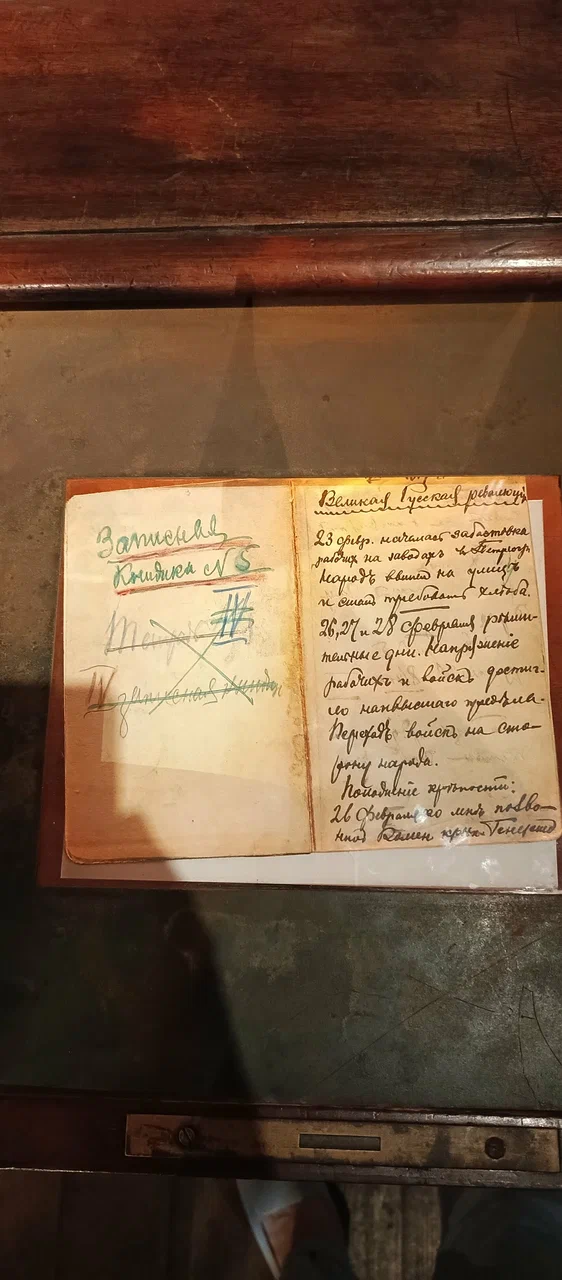 Записная
Книжка N 5
IV
IV записная книжка
Великая Русская революція
23 февр. началась забастовка
рабочих на заводахъ въ Петрогр.
Народъ вышел на улицъ
и сталъ требовать хлѣба.
26, 27 и 28 Февраля рѣши-
тельные дни. Напряженіе
рабочихъ и войскъ достиг-
ло наивысшаго предѣла.
Переходъ войскъ на сто-
рону народа.
Положеніе крѣпости:
26 Февраля ко мнѣ позво-
нил